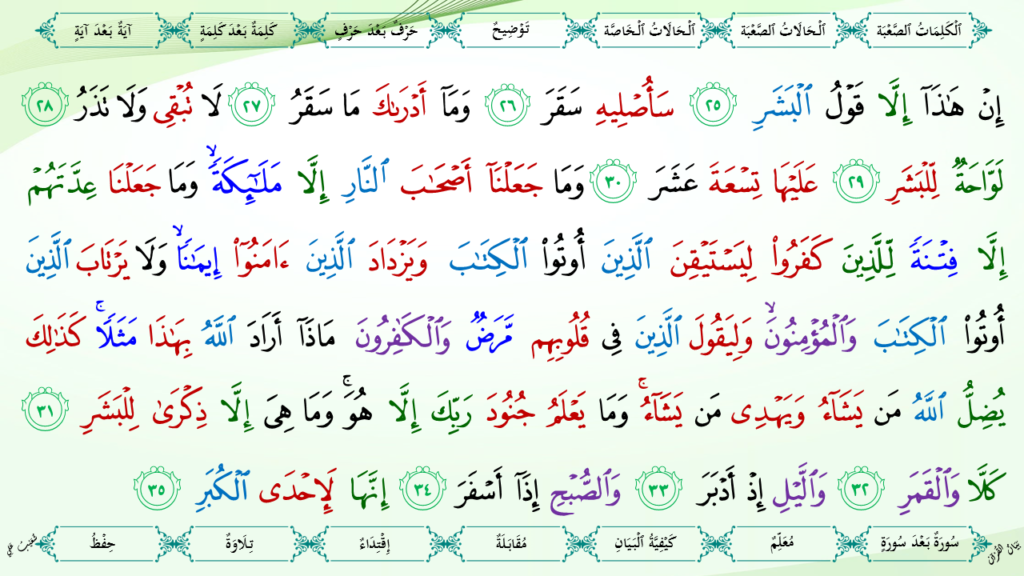 اَلْكَلِمَاتُ الصَّعْبَة اَلْحَالَاتُ الصَّعْبَة اَلْحَالَاتُ الْخَاصَّة تَوْضِيحٌ حَرْفٌ بَعْدَ حَرْفٍ كَلِمَةٌ بَعْدَ كَلِمَةٍ آيَةٌ بَعْدَ آيَةٍ
إِنۡ هَٰذَآ إِلَّا قَوۡلُ ٱلۡبَشَرِ ٢٥ سَأُصۡلِيهِ سَقَرَ ٢٦ وَمَآ أَدۡرَىٰكَ مَا سَقَرُ ٢٧ لَا تُبۡقِي وَلَا تَذَرُ ٢٨
لَوَّاحَةٞ لِّلۡبَشَرِ ٢٩ عَلَيۡهَا تِسۡعَةَ عَشَرَ ٣٠ وَمَا جَعَلۡنَآ أَصۡحَٰبَ ٱلنَّارِ إِلَّا مَلَٰٓئِكَةٗۙ وَمَا جَعَلۡنَا عِدَّتَهُمۡ
إِلَّا فِتۡنَةٗ لِّلَّذِينَ كَفَرُواْ لِيَسۡتَيۡقِنَ ٱلَّذِينَ أُوتُواْ ٱلۡكِتَٰبَ وَيَزۡدَادَ ٱلَّذِينَ ءَامَنُوٓاْ إِيمَٰنٗاۙ وَلَا يَرۡتَابَ ٱلَّذِينَ
أُوتُواْ ٱلۡكِتَٰبَ وَٱلۡمُؤۡمِنُونَۙ وَلِيَقُولَ ٱلَّذِينَ فِي قُلُوبِهِم مَّرَضٞ وَٱلۡكَٰفِرُونَ مَاذَآ أَرَادَ ٱللَّهُ بِهَٰذَا مَثَلٗاۚ كَذَٰلِكَ
يُضِلُّ ٱللَّهُ مَن يَشَآءُ وَيَهۡدِي مَن يَشَآءُۚ وَمَا يَعۡلَمُ جُنُودَ رَبِّكَ إِلَّا هُوَۚ وَمَا هِيَ إِلَّا ذِكۡرَىٰ لِلۡبَشَرِ ٣١
كَلَّا وَٱلۡقَمَرِ ٣٢ وَٱلَّيۡلِ إِذۡ أَدۡبَرَ ٣٣ وَٱلصُّبۡحِ إِذَآ أَسۡفَرَ ٣٤ إِنَّهَا لَإِحۡدَى ٱلۡكُبَرِ ٣٥
سُورَةٌ بَعْدَ سُورَةٍ مُعَلِّمٌ كَيْفِيَّةُ الْبَيَانِ مُقَابَلَةٌ إِقْتِدَاءٌ تِلَاوَةٌ حِفْظٌ
بَيَانُ الْقُرْآنِ